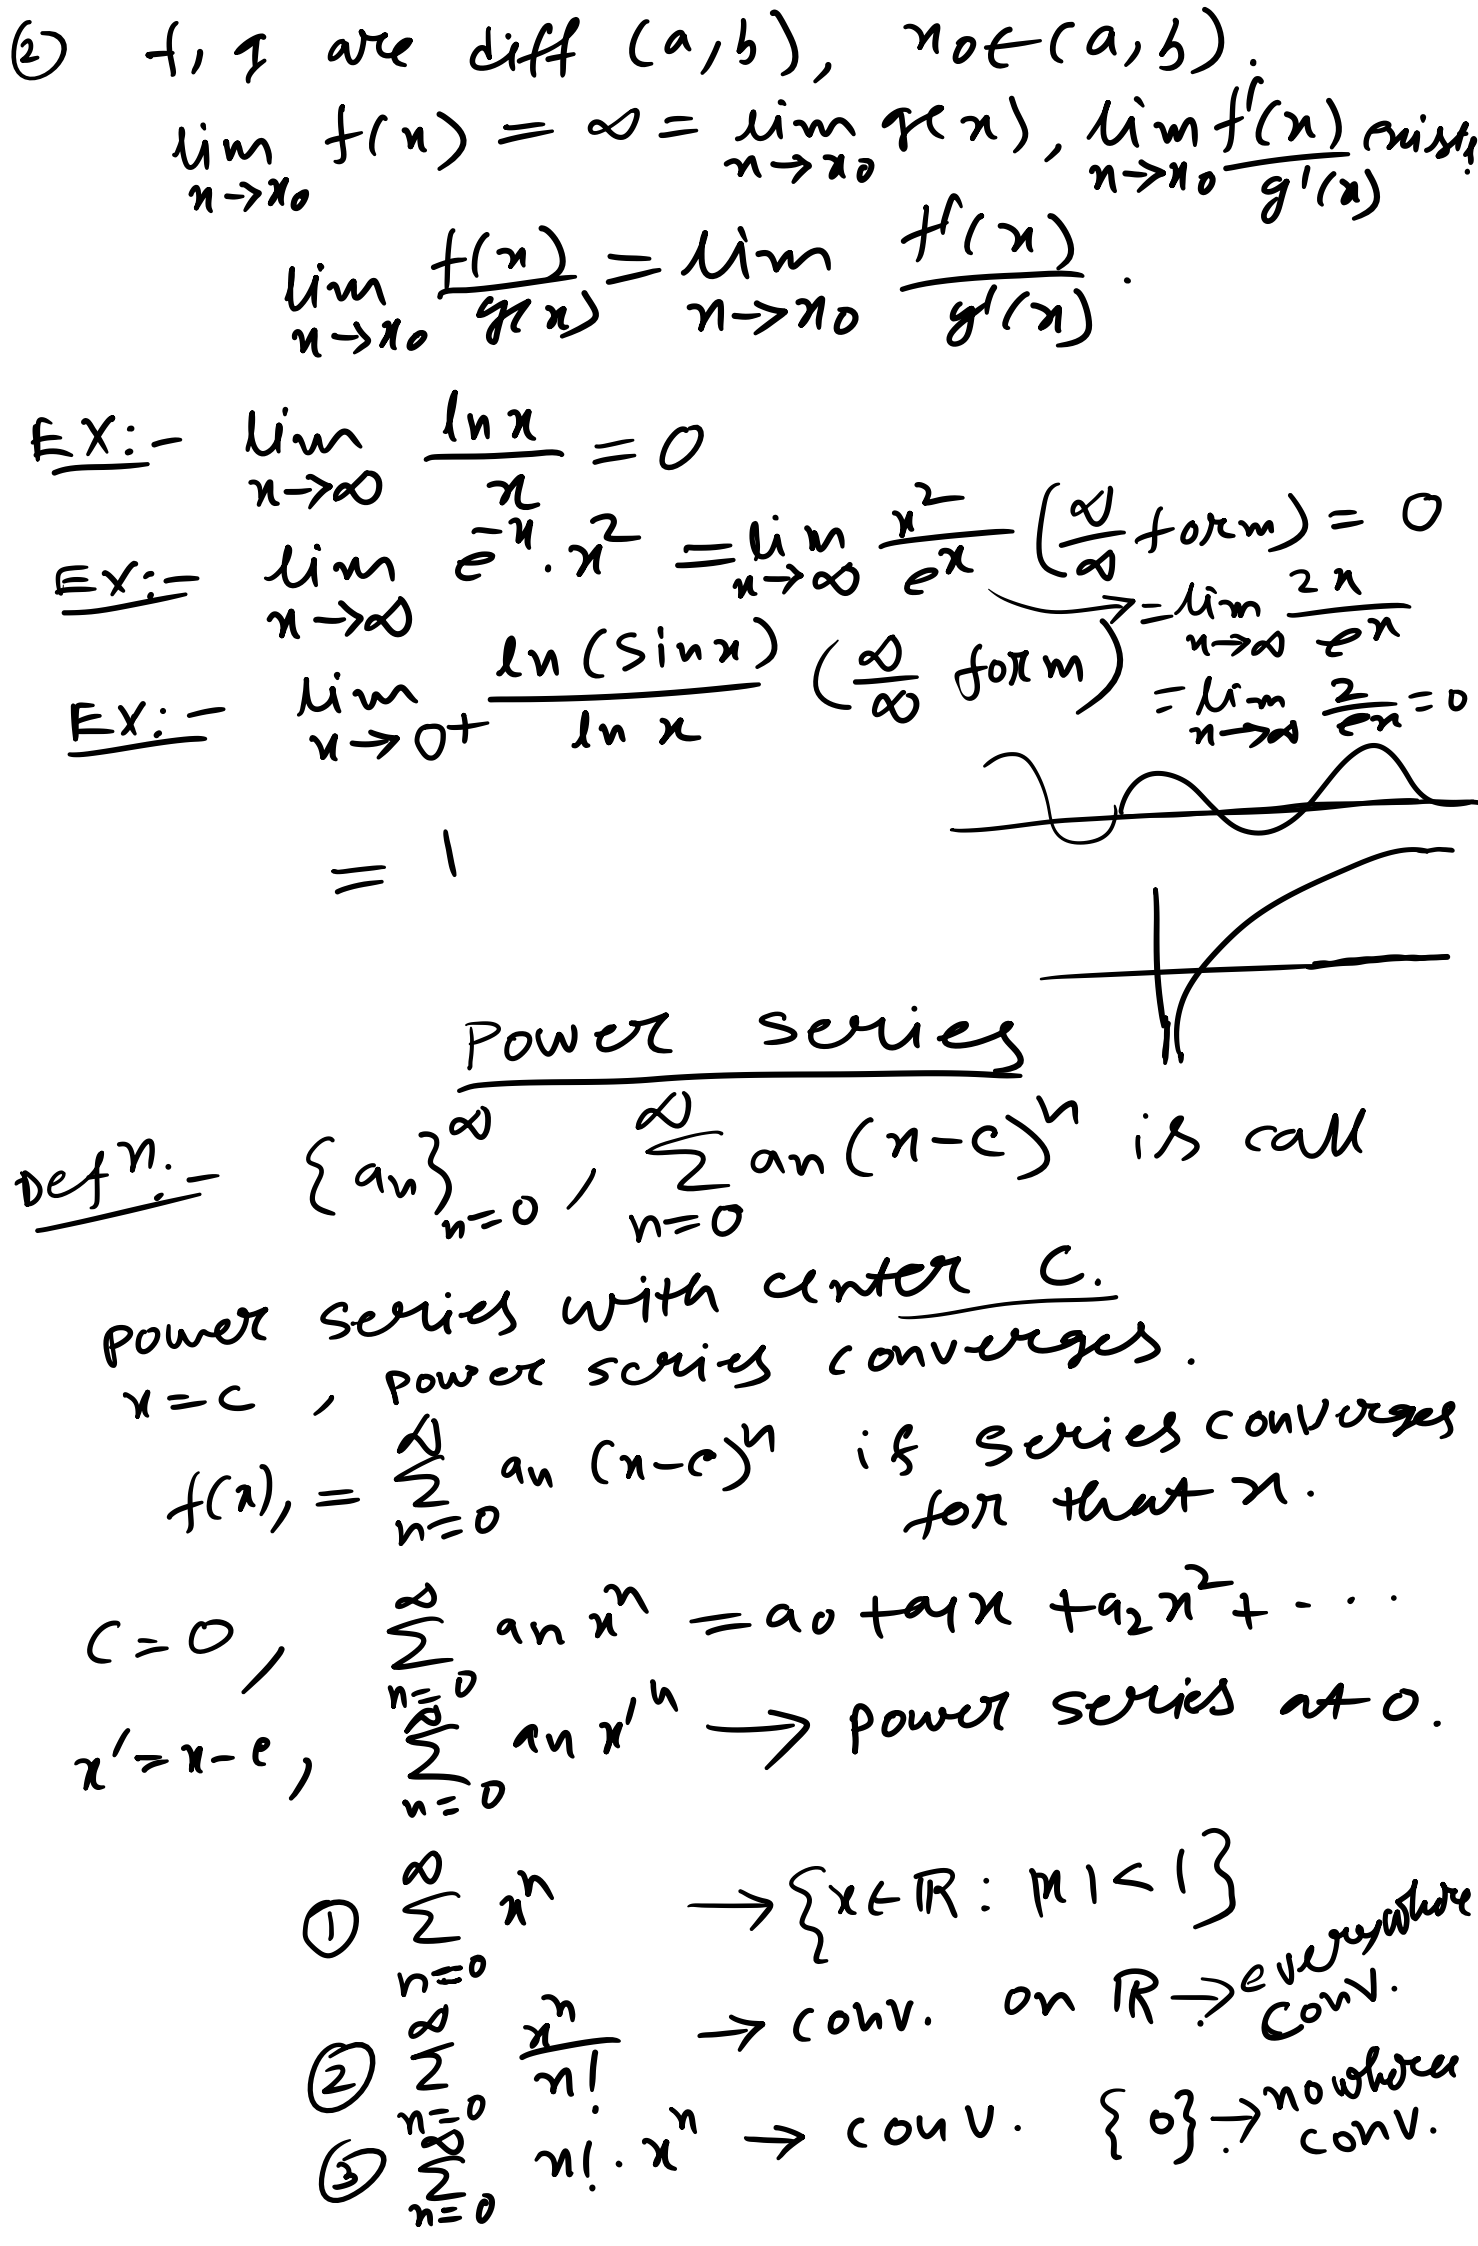 ② f, g are diff (a,b), x₀∈(a,b).
lim_{x→x₀} f(x) = ∞ = lim_{x→x₀} g(x), lim_{x→x₀} f'(x)/g'(x) exists.
lim_{x→x₀} f(x)/g(x) = lim_{x→x₀} f'(x)/g'(x).
EX:- lim_{x→∞} ln x / x = 0
EX:- lim_{x→∞} e^{-x} . x² = lim_{x→∞} x²/e^x (∞/∞ form) = 0
= lim_{x→∞} 2x/e^x
= lim_{x→∞} 2/e^x = 0
EX:- lim_{x→0+} ln(sinx)/ln x (∞/∞ form)
= 1
Power series
Defn:- {an}_{n=0}^∞, ∑_{n=0}^∞ an(x-c)^n is call
power series with center c.
x=c, power series converges.
f(x), = ∑_{n=0}^∞ an (x-c)^n if series converges
for that x.
C=0, ∑_{n=0}^∞ an x^n = a0 + a1x + a₂x² + - . . .
x' = x-c, ∑_{n=0}^∞ an x'^n → power series at 0.
① ∑_{n=0}^∞ x^n → {x∈ℝ : |x| < 1}
② ∑_{n=0}^∞ x^n/n! → conv. on ℝ. → everywhere conv.
③ ∑_{n=0}^∞ n! . x^n → conv. {0}. → nowhere conv.